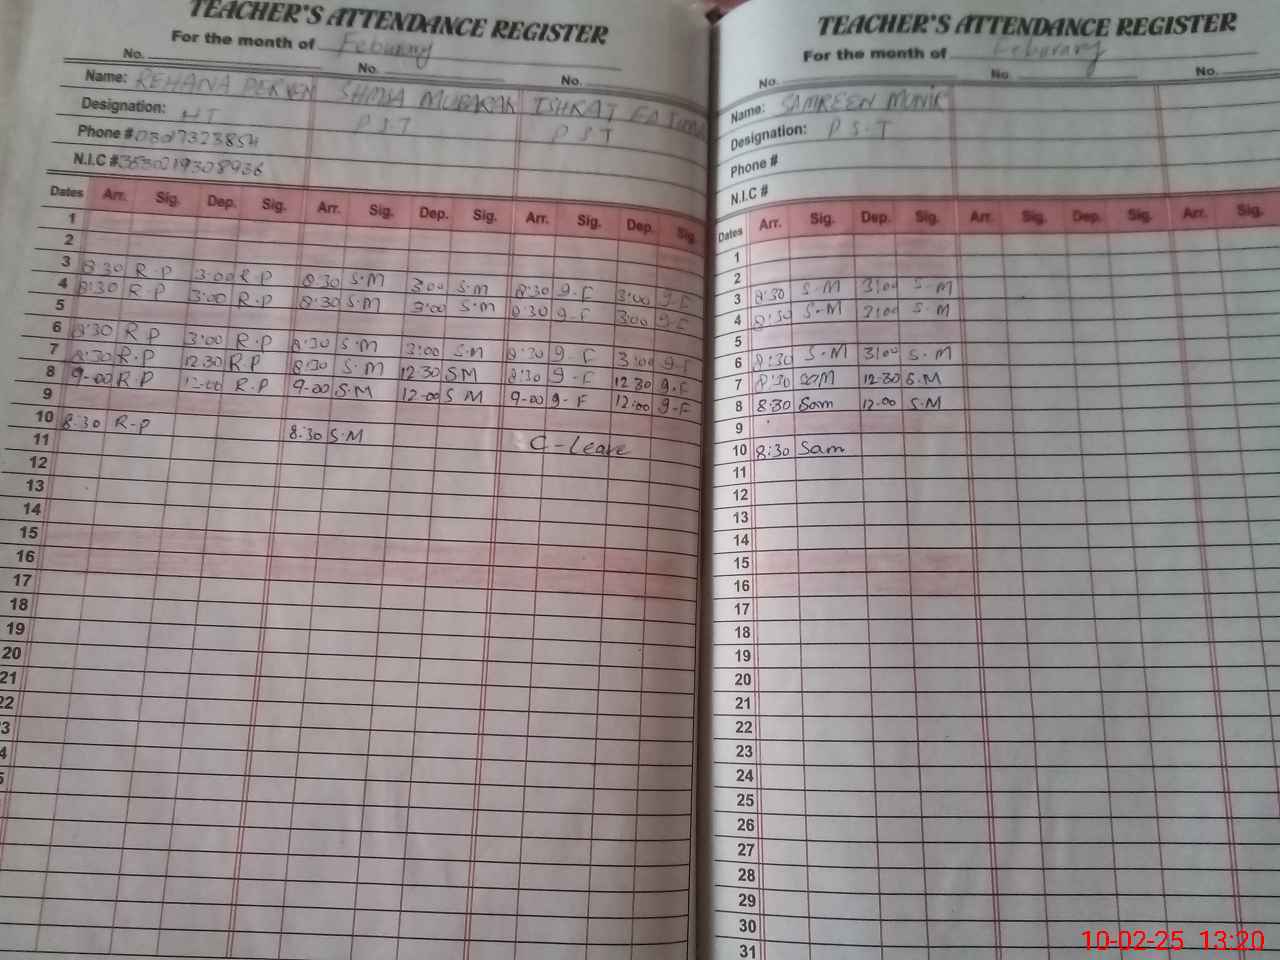 TEACHER'S ATTENDANCE REGISTER
For the month of Feburary
No. No. No.
Name: REHANA PERVEN SHMSA MUBARAK ISHRAT FATIMA
Designation: HT P.S.T P S T
Phone #
N.I.C #
Dates Arr. Sig. Dep. Sig. Arr. Sig. Dep. Sig. Arr. Sig. Dep. Sig.
1
2
3 8:30 R.P 3:00 R.P 8:30 S.M 3:00 S.M 8:30 g-F 3:00 g-F
4 8:30 R.P 3:00 R.P 8:30 S.M 3:00 S.M 8:30 g-F 3:00 g-F
5
6 8:30 R P 3:00 R.P 8:30 S.M 3:00 S.M 8:30 g-F 3:00 g-F
7 8:30 R.P 12.30 R.P 8:30 S.M 12.30 SM 8:30 g-F 12.30 g.F
8 9-00 R.P 12-00 R.P 9-00 S.M 12-00 S M 9-00 g-F 12:00 g-F
9
10 8:30 R-P 8:30 S.M C-Leave
11
12
13
14
15
16
17
18
19
20
21
22
3
4
5
TEACHER'S ATTENDANCE REGISTER
For the month of Feburary
No. No. No.
Name: SAMREEN MUNIR
Designation: P S.T
Phone #
N.I.C #
Dates Arr. Sig. Dep. Sig. Arr. Sig. Dep. Sig. Arr. Sig.
1
2
3 8:30 S-M 3:00 S.M
4 8:30 S-M 3:00 S.M
5
6 8:30 S.M 3:00 S.M
7 8:30 Sam 12-30 S.M
8 8:30 Sam 12-00 S.M
9
10 8:30 Sam
11
12
13
14
15
16
17
18
19
20
21
22
23
24
25
26
27
28
29
30
31
10-02-25 13:20